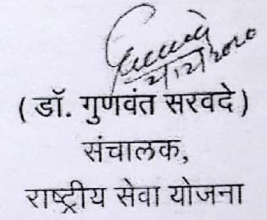 (डॉ. गुणवंत सरवदे)
संचालक,
राष्ट्रीय सेवा योजना